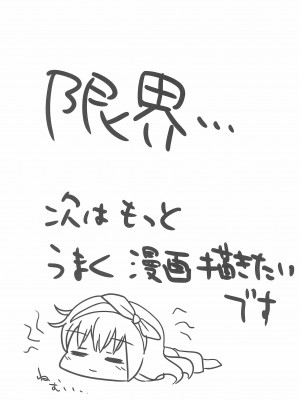 限界…
次はもっと
うまく漫画描きたい
です
ねむい…